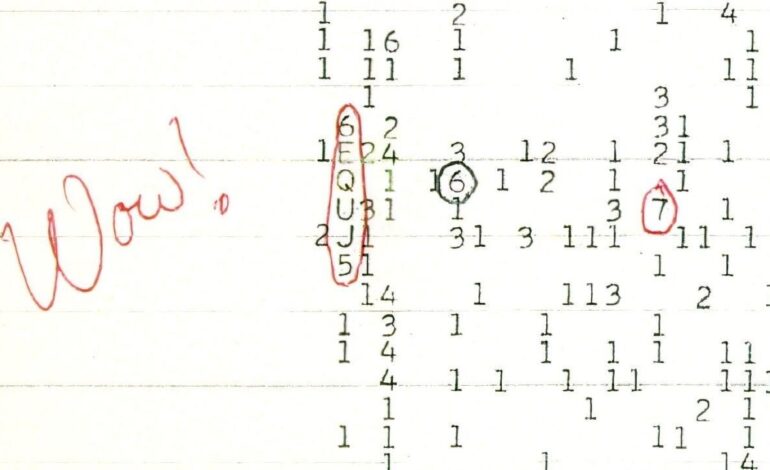 1 2 1 4
1 16 1 1 1
1 11 1 1 11
1 3 1
6 2 31
1E24 3 12 1 21 1
Q 1 16 1 2 1 1
Wow! U31 1 3 7 1
2J1 31 3 111 11 1
51 1 1
14 1 113 2
1 3 1 1 1
1 4 1 1 1 11
4 1 1 1 11 11
1 1 2 1
1 1 1 11 1
1 1 14